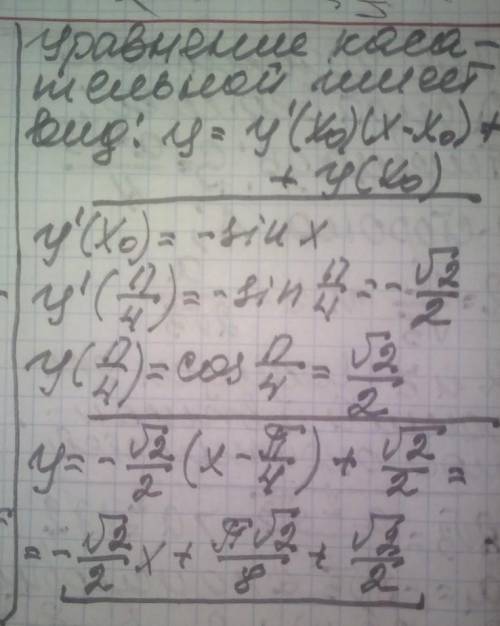 уравнение каса-
тельной имеет
вид: y = y'(x₀)(x-x₀)+
+ y(x₀)
y'(x₀) = -sin x
y'(π/4) = -sin π/4 = -√2/2
y(π/4) = cos π/4 = √2/2
y = -√2/2 (x - π/4) + √2/2 =
= -√2/2 x + π√2/8 + √2/2